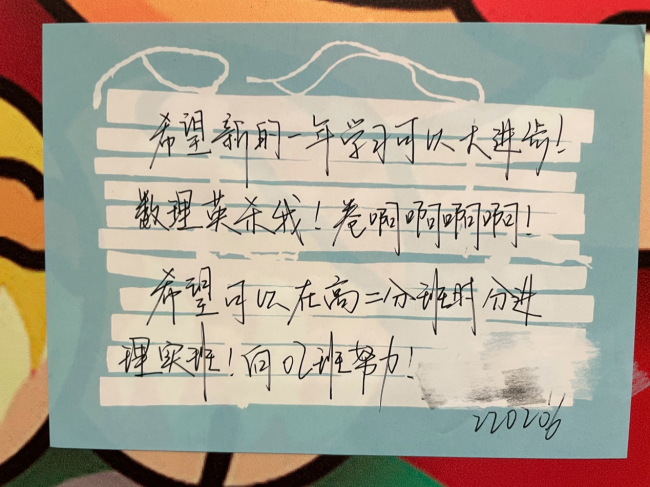 希望新的一年学习可以大进步!
数理英杀我!卷啊啊啊啊!
希望可以在高二分班时分进
理实班!向02班努力!
220206